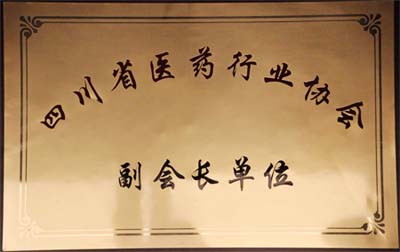 四川省医药行业协会
副会长单位